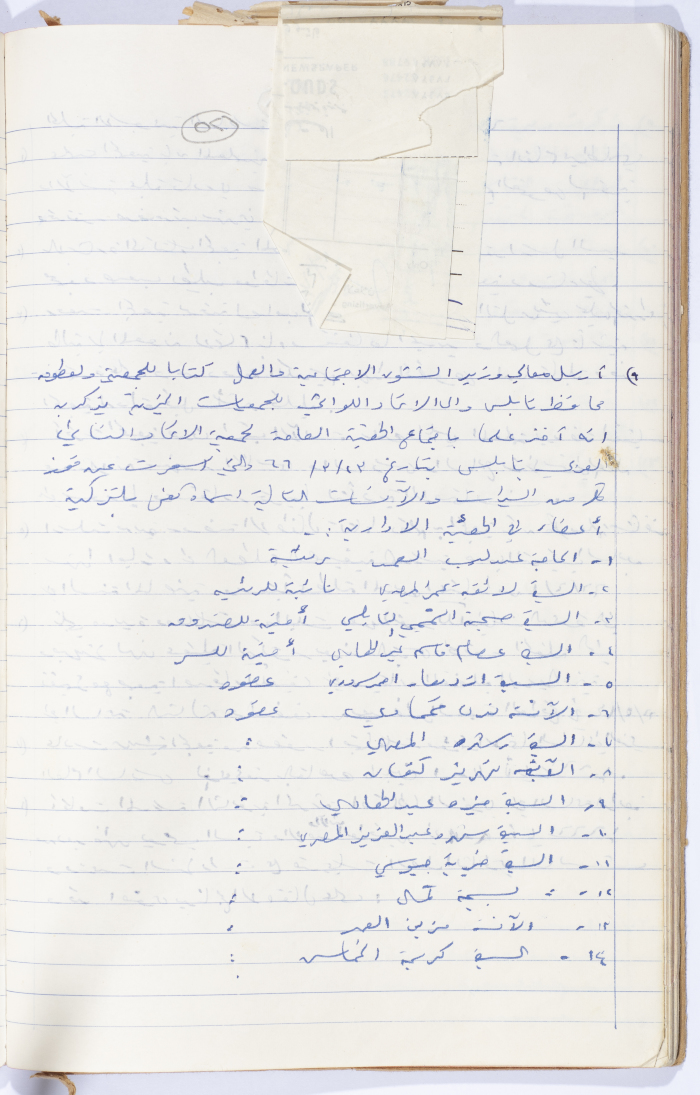 ٢٥
٩) أرسل معالي وزير الشئون الاجتماعية والعمل كتابا للجمعية ولعطوفة
محافظ نابلس والى الاتحاد اللوائي للجمعيات الخيرية يذكر به
انه أخذ علما باجتماع الهيئة العامة لجمعية الاتحاد النسائي
العربي بنابلس بتاريخ ٢٣/٣/٦٦ والتي أسفرت عن فوز
كل من السيدات والآنسات التالية اسماؤهن بالتزكية
أعضاء في الهيئة الادارية:
١- الحاجة عندليب العمد رئيسة
٢- السيدة لائقة عمر المصري نائبة للرئيسه
٣- السيدة صبحية التميمي النابلسي أمينة للصندوق
٤- السيدة عصام قاسم عبد الهادي أمينة للسر
٥- السيدة احمد سروري عضوه
٦- الآنسة عضوه
٧- السيدة رشده المصري :
٨- الآنسة فريز كنعان :
٩- السيدة منيره عبد الهادي :
١٠- السيدة عبد العزيز المصري :
١١- السيدة خيرية جيوسي :
١٢- : بسيمة كمال :
١٣- الآنسة مزين العمد :
١٤- السيدة كريمة الخماش :